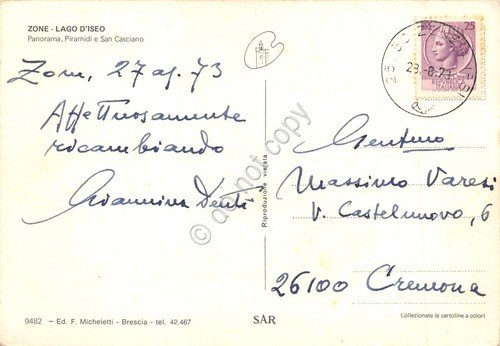 ZONE - LAGO D'ISEO
Panorama, Piramidi e San Casciano
Zone, 27 ag. 73
Affettuosamente
ricambiando
Giannina Denti
Riproduzione vietata
25
28.-8-73
Gent.mo
Massimo Varesi
V. Castelnuovo, 6
26100 Cremona
9482 – Ed. F. Micheletti - Brescia - tel. 42.467
SAR
Collezionate le cartoline a colori
do not copy